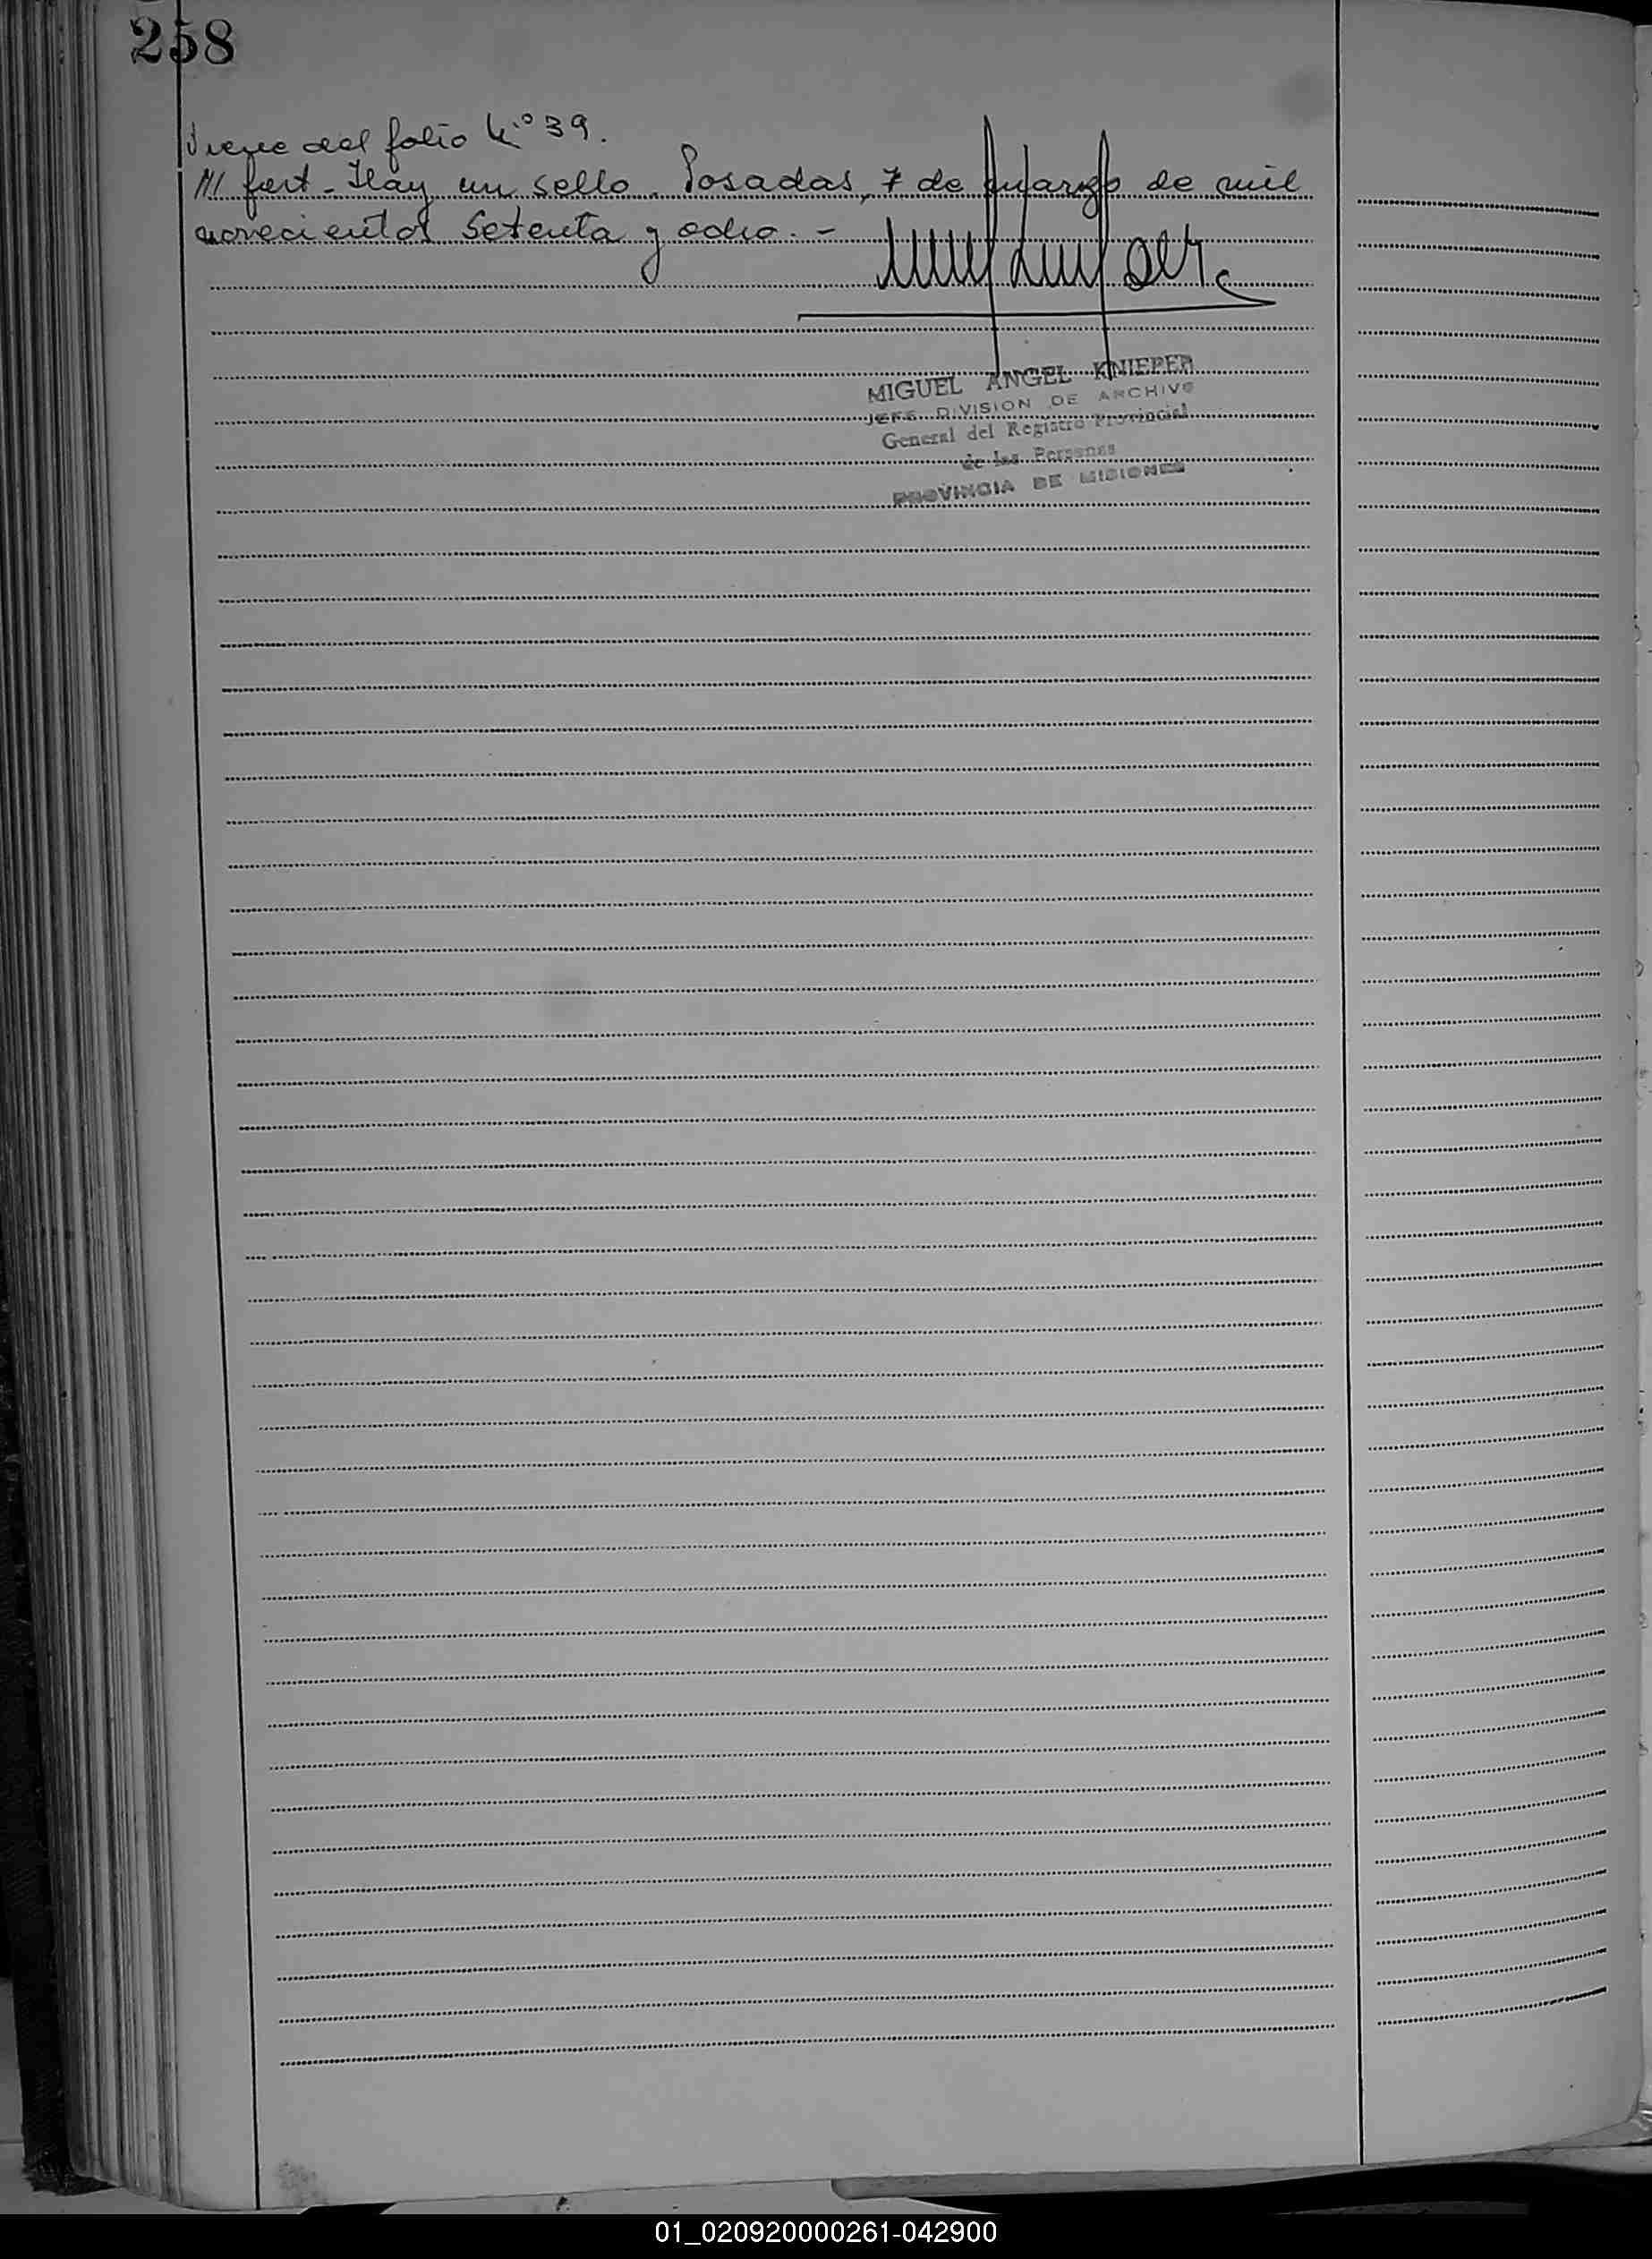 258
Viene del folio Nº 39.
/// fert - Hay un sello. Posadas, 7 de marzo de mil
novecientos setenta y ocho. -
MIGUEL ANGEL KNIEPER
JEFE DIVISION DE ARCHIVO
General del Registro Provincial
de las Personas
PROVINCIA DE MISIONES
01_020920000261-042900